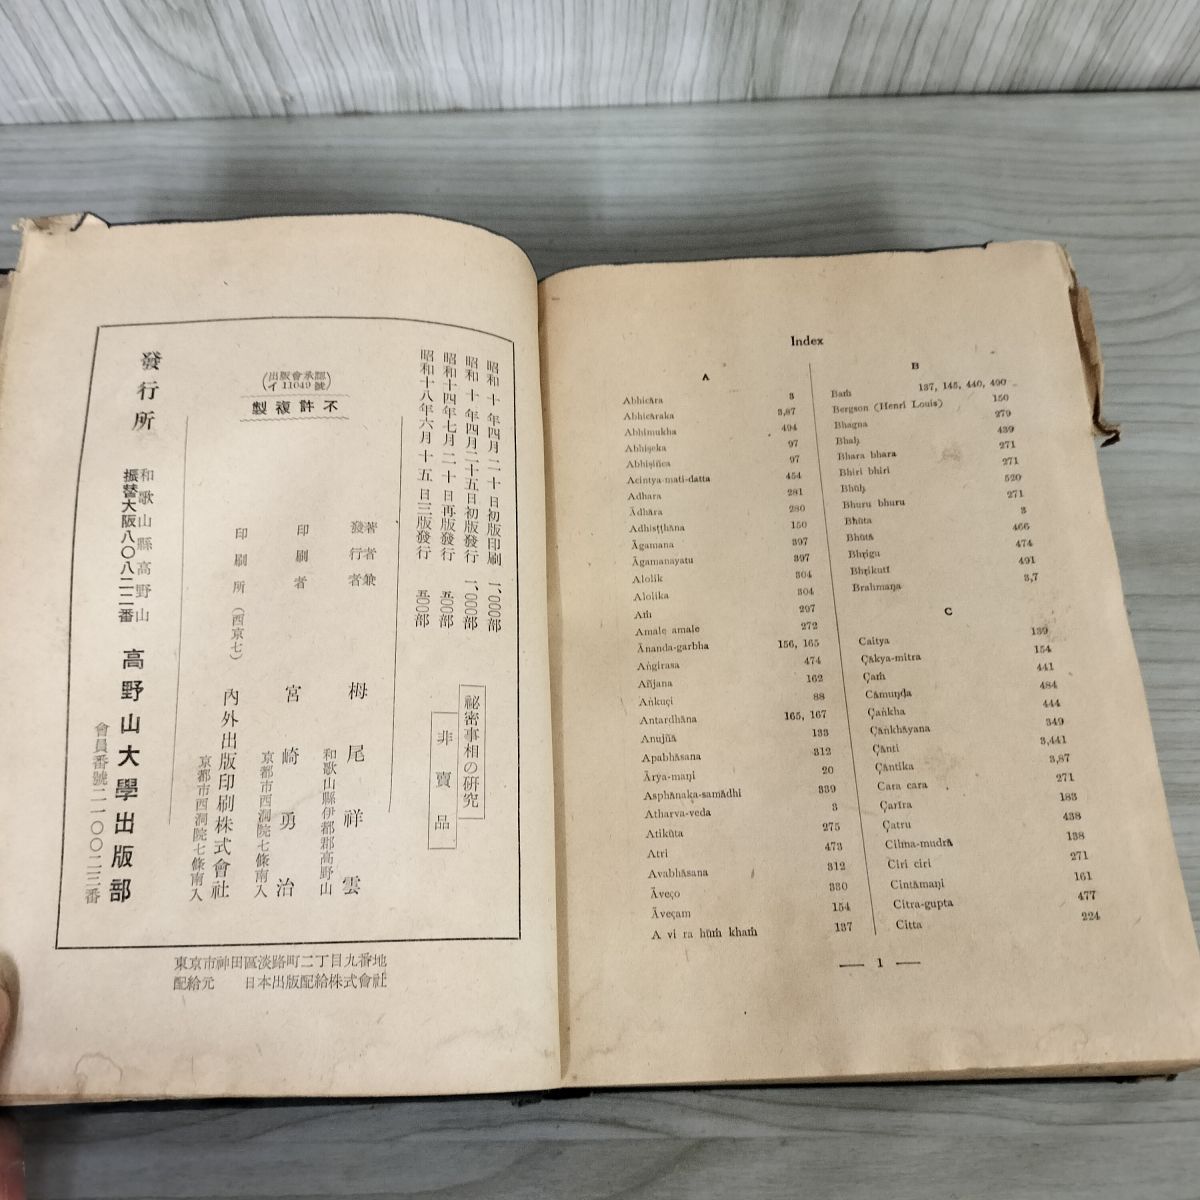 昭和十年四月二十日初版印刷 一、〇〇〇部
昭和十年四月二十五日初版發行 一、〇〇〇部
昭和十四年七月二十日再版發行 五〇〇部
昭和十八年六月十五日三版發行 五〇〇部
祕密事相の硏究
非賣品
著者兼
發行者
栂尾祥雲
和歌山縣伊都郡高野山
印刷者
宮崎勇治
京都市西洞院七條南入
印刷所(西京七)
內外出版印刷株式會社
京都市西洞院七條南入
(出版會承認
イ11049號)
不許複製
發行所
和歌山縣高野山
振替大阪八〇八二二番
高野山大學出版部
會員番號二一〇〇二三番
東京市神田區淡路町二丁目九番地
配給元 日本出版配給株式會社
Index
A
Abhicāra 3
Abhicāraka 3,87
Abhimukha 494
Abhiṣeka 97
Abhiṣiñca 97
Acintya-mati-datta 454
Adhara 281
Ādhāra 280
Adhiṣṭhāna 150
Āgamana 397
Āgamanayatu 397
Alolik 304
Alolika 304
Aṁ 297
Amale amale 272
Ānanda-garbha 156, 165
Aṅgirasa 474
Añjana 162
Aṅkuçi 88
Antardhāna 165, 167
Anujñā 133
Apabhāsana 312
Ārya-maṇi 20
Asphānaka-samādhi 339
Atharva-veda 3
Atikūta 275
Atri 473
Avabhāsana 312
Āveço 330
Āveçam 154
A vi ra hūṁ khaṁ 137
B
Baṁ 137, 145, 440, 490
Bergson (Henri Louis) 150
Bhagna 279
Bhaḥ 439
Bhara bhara 271
Bhiri bhiri 271
Bhūḥ 520
Bhuru bhuru 271
Bhūta 3
Bhūtā 466
Bhṛigu 474
Bhṛikutī 491
Brahmaṇa 3,7
C
Caitya 139
Çākya-mitra 154
Çaṁ 441
Cāmuṇḍa 484
Çaṅkha 444
Çāṅkhāyana 349
Çānti 3,441
Çāntika 3,87
Cara cara 271
Çarīra 183
Çatru 438
Cihna-mudrā 138
Ciri ciri 271
Cintāmaṇi 161
Citra-gupta 477
Citta 224
— 1 —